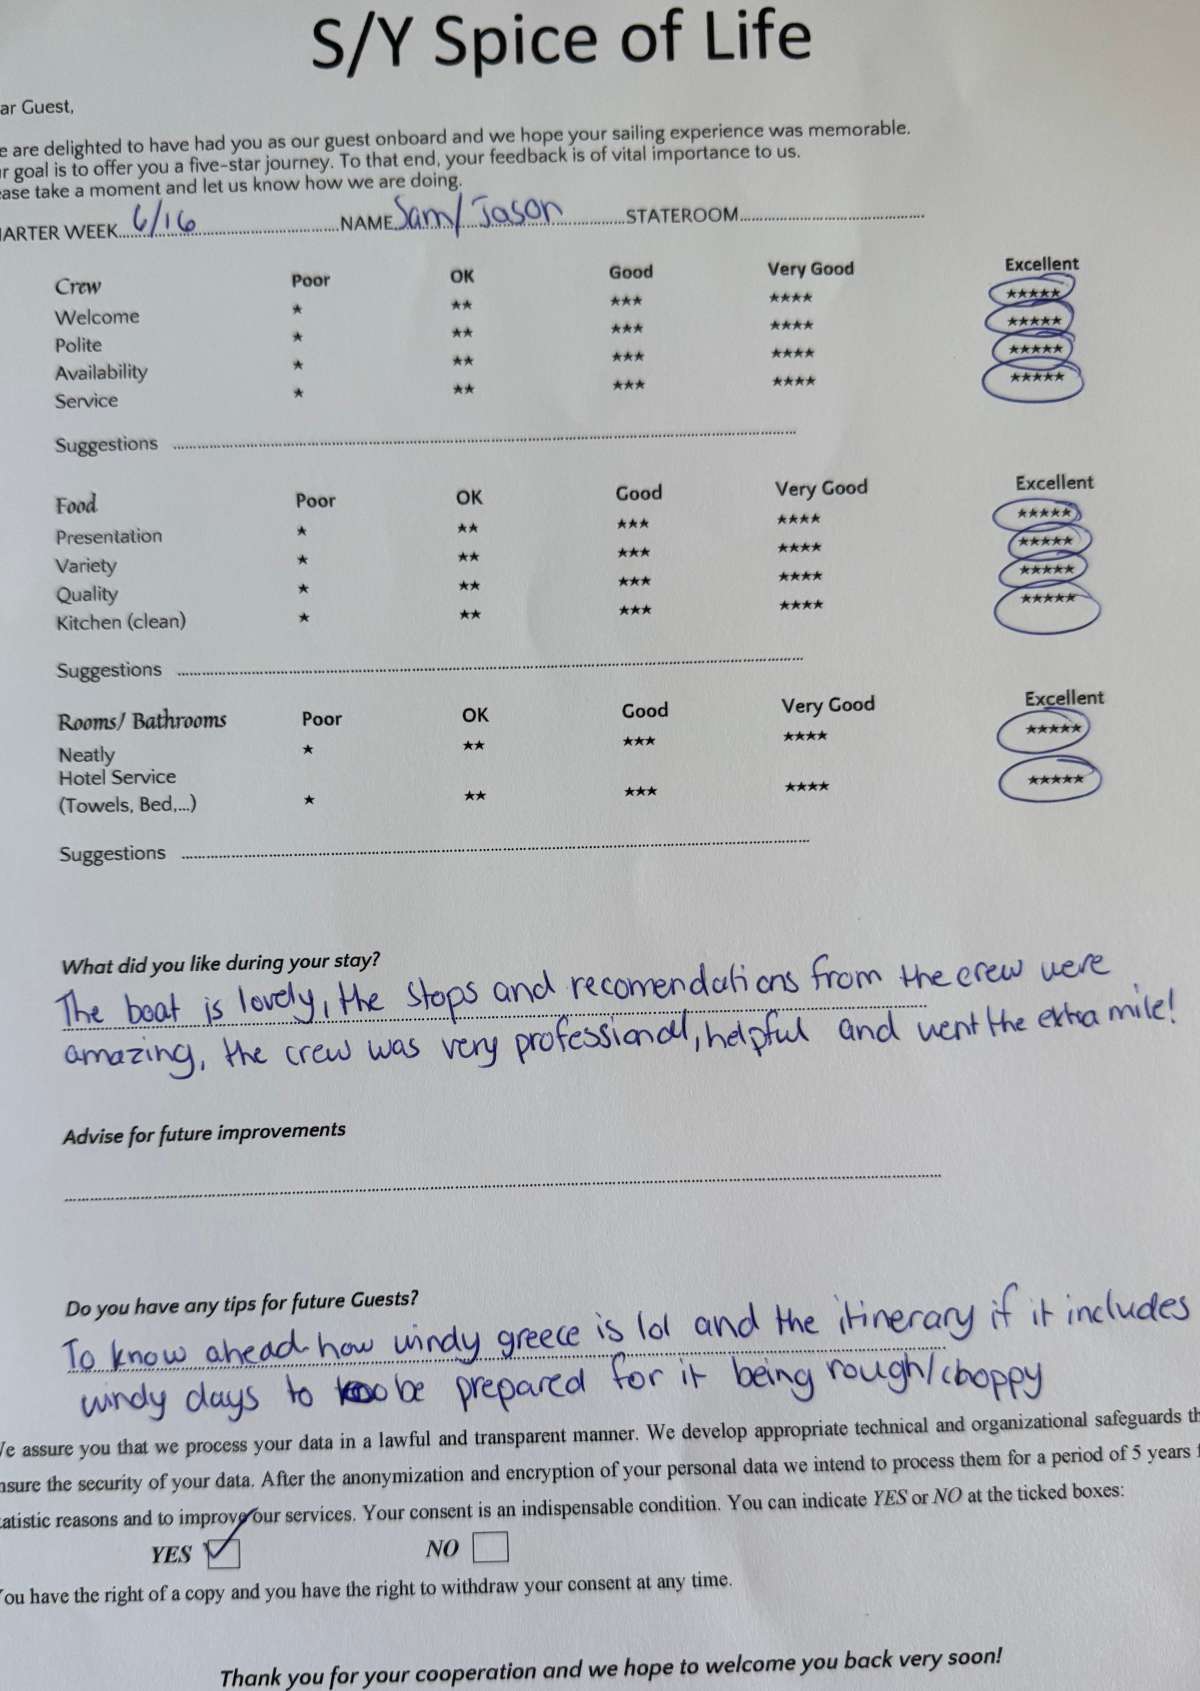 S/Y Spice of Life
ar Guest,
e are delighted to have had you as our guest onboard and we hope your sailing experience was memorable.
r goal is to offer you a five-star journey. To that end, your feedback is of vital importance to us.
ase take a moment and let us know how we are doing.
ARTER WEEK 6/16 NAME Sam/ Jason STATEROOM
Crew Poor OK Good Very Good Excellent
Welcome ★ ★★ ★★★ ★★★★ ★★★★★
Polite ★ ★★ ★★★ ★★★★ ★★★★★
Availability ★ ★★ ★★★ ★★★★ ★★★★★
Service ★ ★★ ★★★ ★★★★ ★★★★★
Suggestions
Food Poor OK Good Very Good Excellent
Presentation ★ ★★ ★★★ ★★★★ ★★★★★
Variety ★ ★★ ★★★ ★★★★ ★★★★★
Quality ★ ★★ ★★★ ★★★★ ★★★★★
Kitchen (clean) ★ ★★ ★★★ ★★★★ ★★★★★
Suggestions
Rooms/ Bathrooms Poor OK Good Very Good Excellent
Neatly ★ ★★ ★★★ ★★★★ ★★★★★
Hotel Service
(Towels, Bed,...) ★ ★★ ★★★ ★★★★ ★★★★★
Suggestions
What did you like during your stay?
The boat is lovely, the stops and recomendations from the crew were
amazing, the crew was very professional, helpful and went the extra mile!
Advise for future improvements
Do you have any tips for future Guests?
To know ahead how windy greece is lol and the itinerary if it includes
windy days to be prepared for it being rough/choppy
e assure you that we process your data in a lawful and transparent manner. We develop appropriate technical and organizational safeguards th
nsure the security of your data. After the anonymization and encryption of your personal data we intend to process them for a period of 5 years f
tatistic reasons and to improve our services. Your consent is an indispensable condition. You can indicate YES or NO at the ticked boxes:
YES NO
You have the right of a copy and you have the right to withdraw your consent at any time.
Thank you for your cooperation and we hope to welcome you back very soon!